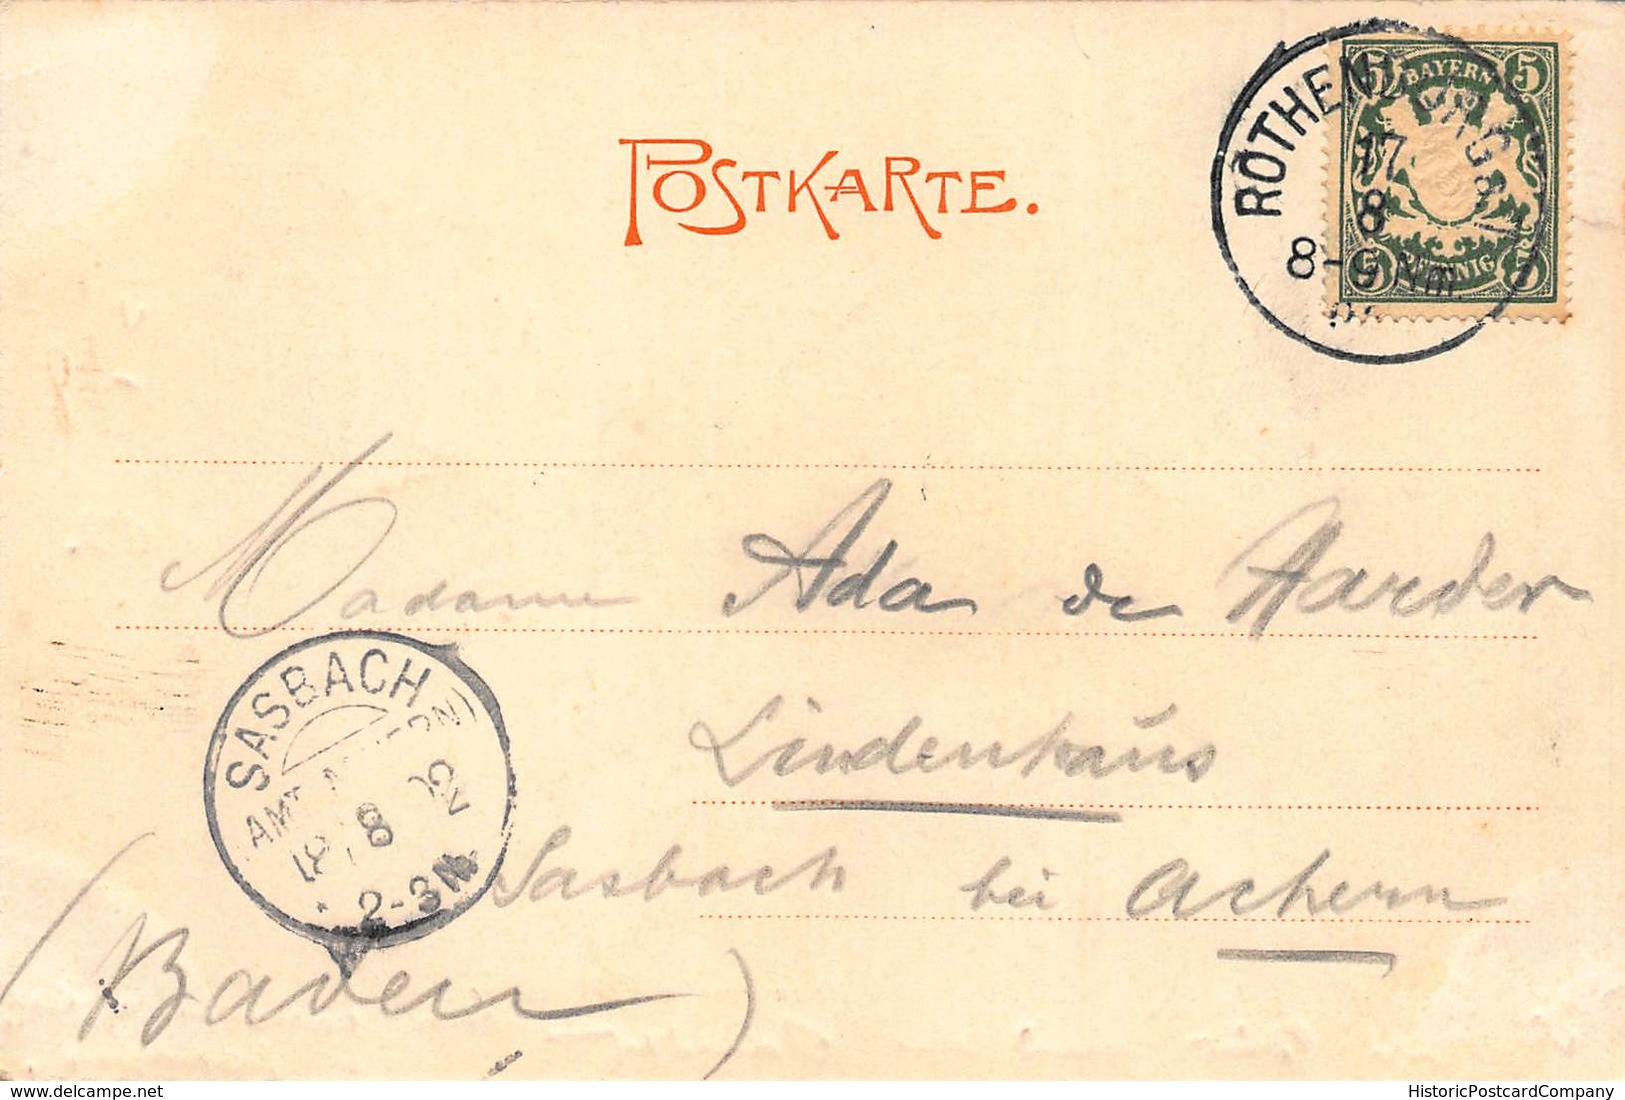 POSTKARTE.
ROTHENBURG a/T.
17
8
8-9 Nm.
5 BAYERN 5
5 PFENNIG 5
Madame Ada de Harder
Lindenhaus
Sasbach bei Achern
(Baden)
SASBACH
AMT ACHERN
8
2-3N
delcampe.net
HistoricPostcardCompany